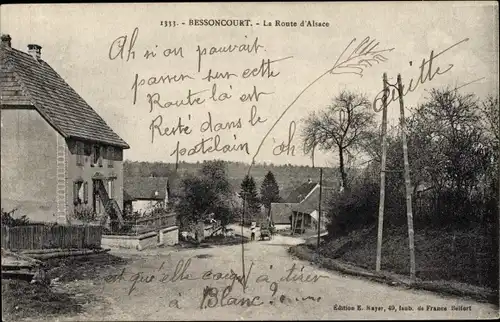 1333 - BESSONCOURT. - La Route d'Alsace
Ah si on pouvait
passer sur cette
Route là est
Resté dans le
patelain ah là
quitte
est qu'elle à tirer
à Blanc?
Édition E. Mayer, 49, faub. de France Belfort